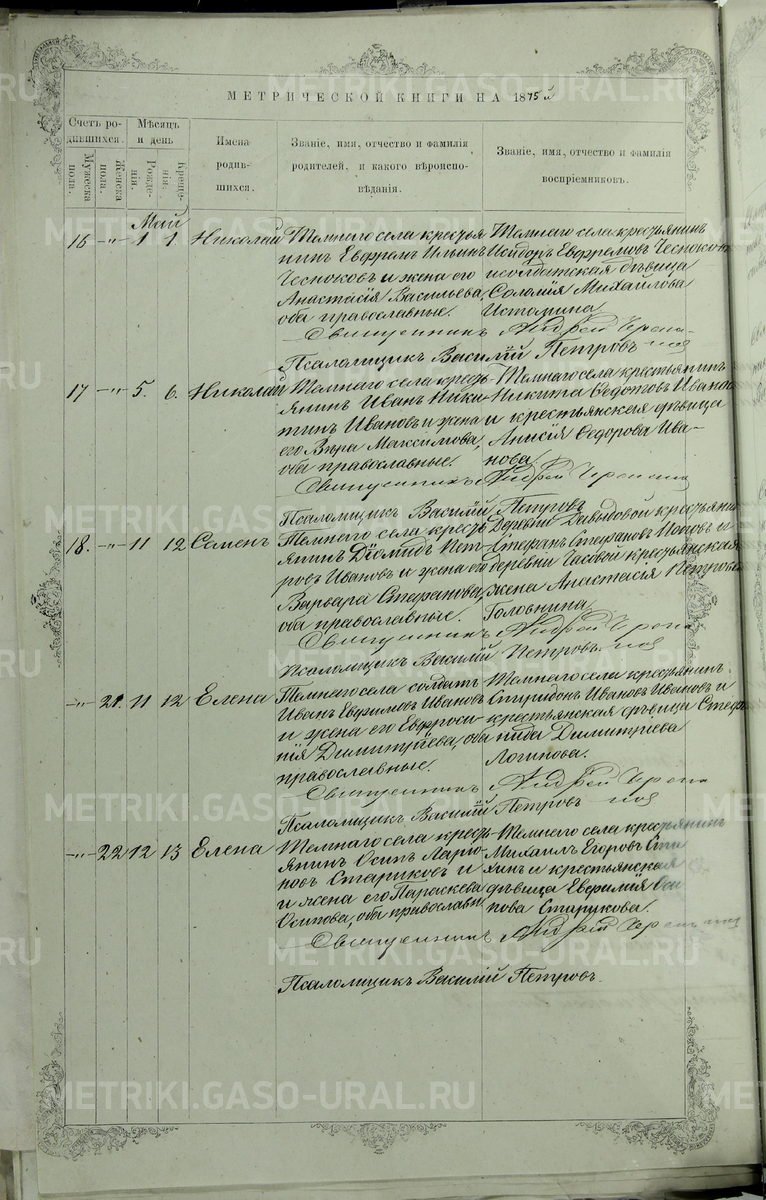 МЕТРИЧЕСКОЙ КНИГИ НА 1875й
Счетъ ро-
дившихся.
Мѣсяцъ
и день
Мужеска
пола.
Женска
пола.
Рожде-
нія.
Креще-
нія.
Имена
родив-
шихся.
Званіе, имя, отчество и фамилія
родителей, и какого вѣроиспо-
вѣданія.
Званіе, имя, отчество и фамилія
воспріемниковъ.
Май
16 -"- 1 1 Николай
Темнаго села крестья
нинъ Ефремъ
Чесноковъ и жена его
Анастасія Васильева,
оба православные.
Темнаго села крестьянинъ
Исидоръ Ефремовъ Чесноковъ
и солдатская дѣвица
Соломія Михайлова
Священникъ Андрей
Псаломщикъ Василій Петровъ
17 -"- 5. 6. Николай
Темнаго села кресть-
янинъ Иванъ Ники-
тинъ Ивановъ и жена
его Вѣра Максимова,
оба православные.
Темнаго села крестьянинъ
Никита Ѳедотовъ Иванов
и крестьянская дѣвица
Анисія Ѳедорова Ива-
нова
Священникъ Андрей
Псаломщикъ Василій Петровъ
18. -"- 11 12 Семенъ
Темнаго села кресть
янинъ Діомидъ Пет-
ровъ Ивановъ и жена его
Варвара Стефанова,
оба православные.
Деревни Давыдовой крестьянин
Стефанъ Стефановъ Поповъ и
деревни Часовой крестьянская
жена Анастасія Петрова
Головнина
Священникъ Андрей
Псаломщикъ Василій Петровъ
-"- 21. 11 12 Елена
Темнаго села солдатъ
Иванъ Евфимовъ Ивановъ
и жена его Евфроси-
нія Димитріева, оба
православные.
Темнаго села крестьянинъ
Спиридонъ Ивановъ Ивановъ и
крестьянская дѣвица Стефа
нида Димитріева
Логинова.
Священникъ Андрей
Псаломщикъ Василій Петровъ
-"- 22 12 13 Елена
Темнаго села кресть
янинъ Осипъ Ларіо-
новъ Стариковъ и
и жена его Параскева
Осипова, оба православны
Темнаго села крестьянинъ
Михаилъ Егоровъ
и крестьянская
дѣвица Евфимія Оси
пова Старикова.
Священникъ Андрей
Псаломщикъ Василій Петровъ.
METRIKI.GASO-URAL.RU